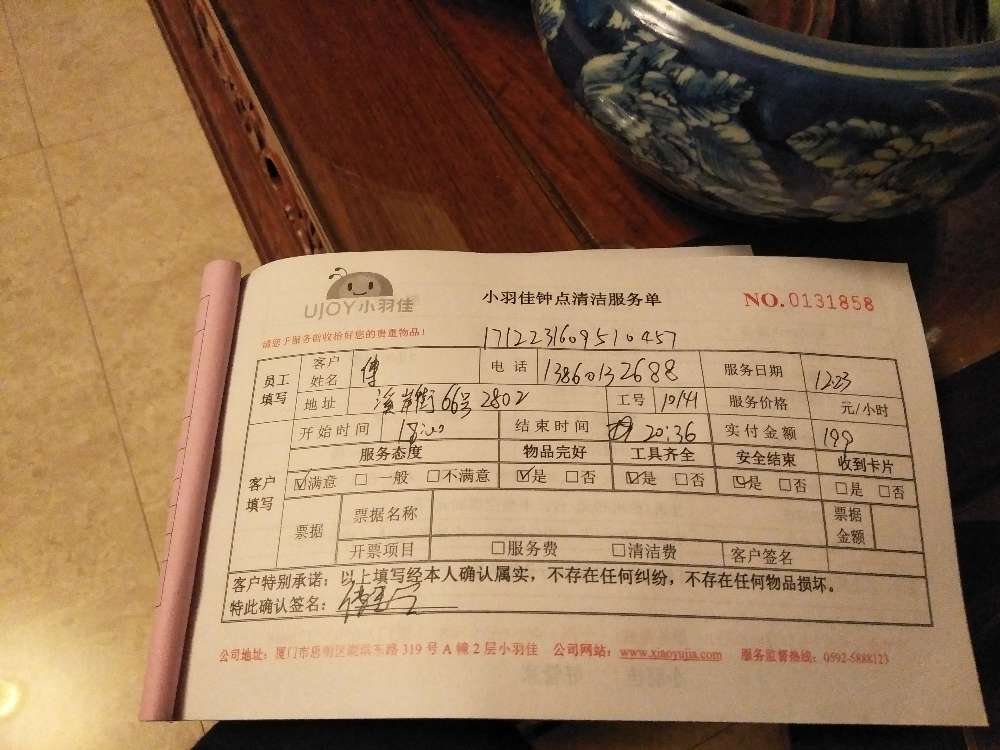 UJOY小羽佳
小羽佳钟点清洁服务单
NO.0131858
请您于服务前收拾好您的贵重物品!
171223160951 0457
员工填写 客户姓名 傅 电话 13860132688 服务日期 12.23
地址 溪岸街66号2802 工号 10141 服务价格 元/小时
开始时间 18:00 结束时间 20:36 实付金额 199
客户填写 服务态度 物品完好 工具齐全 安全结束 收到卡片
☑满意 □一般 □不满意 ☑是 □否 ☑是 □否 ☑是 □否 □是 □否
票据 票据名称 票据金额
开票项目 □服务费 □清洁费 客户签名
客户特别承诺:以上填写经本人确认属实,不存在任何纠纷,不存在任何物品损坏。
特此确认签名:傅
公司地址:厦门市思明区 东路319号A幢2层小羽佳 公司网站:www.xiaoyujia.com 服务监督热线:0592-5888123